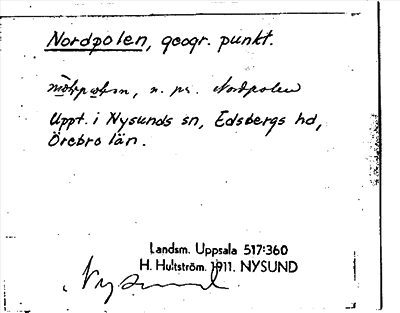 Nordpolen, geogr. punkt.
n. pr. Nordpolen
Uppt. i Nysunds sn, Edsbergs hd,
Örebro län.
Landsm. Uppsala 517:360
H. Hultström. 1911. NYSUND
Nysund